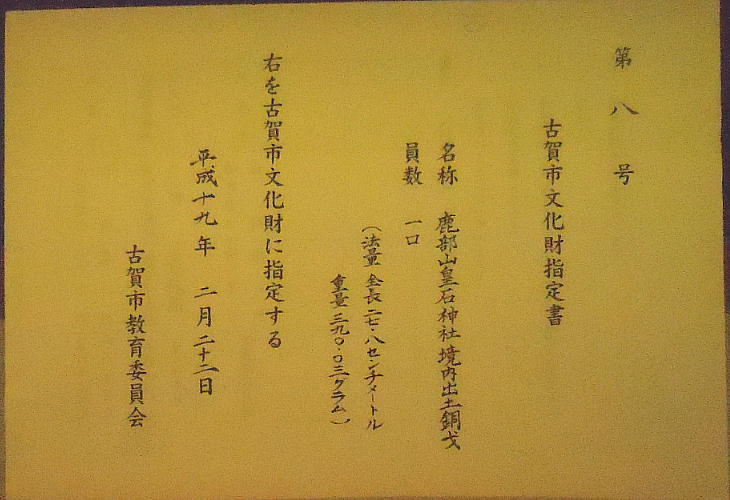 第八号
古賀市文化財指定書
名称 鹿部山皇石神社境内出土銅戈
員数 一口
（法量 全長二七・八センチメートル
重量 三九〇・〇三グラム）
右を古賀市文化財に指定する
平成十九年 二月二十二日
古賀市教育委員会